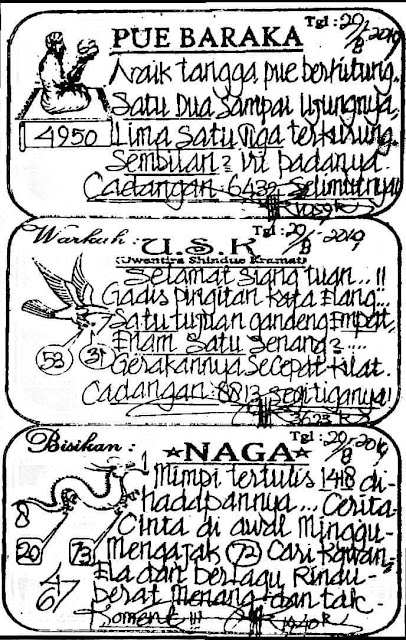 PUE BARAKA
Tgl : 20/8 2019
Naik tangga pue berhitung.
Satu Dua Sampai Ujungnya,
4950
Lima Satu tiga terkurung
Sembilan 2 Iri padanya.
Cadangan : 6439 Selimutnya
Warkah :
U.S.K
Tgl : 20/8 - 2019
(Uwentira Shindue Kramat)
Selamat siang tuan...!!
Gadis pingitan kata Elang...
Satu tujuan gandeng Empat,
Enam Satu Senang 2.....
53
31
Gerakannya Secepat kilat.
Cadangan : 8813 segitiganya!
Bisikan :
NAGA
Tgl : 20/8 - 2019
Mimpi tertulis 1418 di-
hadapannya... Cerita
8
Cinta di awal Minggu-
20
73
Mengajak 72 Cari Kawan-
47
67
Ela dan berlagu Rindu-
berat Menang dan tak-
Koment !!!
1940 R